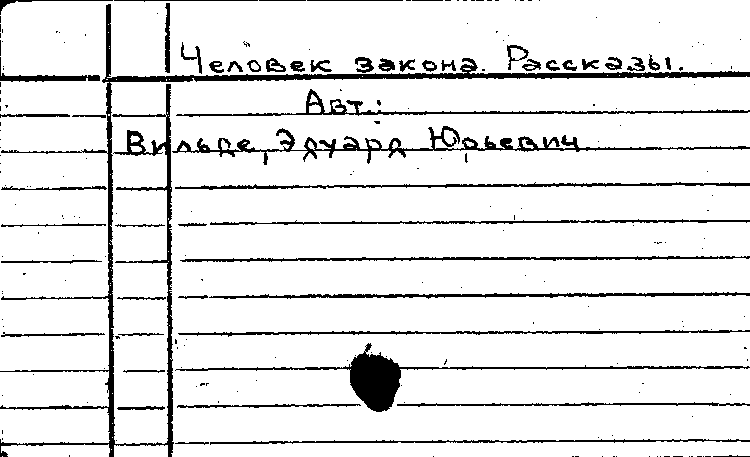 Человек закона. Рассказы.
Авт.:
Вильде, Эдуард Юрьевич